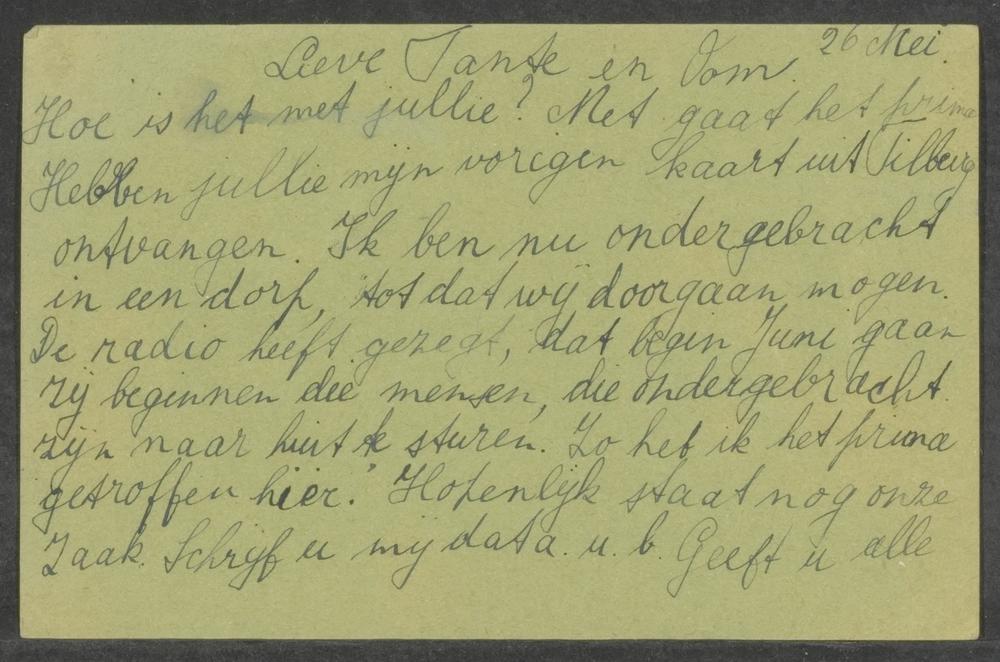 26 Mei.
Lieve Tante en Oom.
Hoe is het met jullie? Met gaat het prima
Hebben jullie mijn vorigen kaart uit Tilburg
ontvangen. Ik ben nu ondergebracht
in een dorp, tot dat wij doorgaan mogen.
De radio heeft gezegt, dat begin Juni gaan
zij beginnen die mensen, die ondergebracht
zijn naar huis te sturen. Zo heb ik het prima
getroffen hier. Hopenlijk staat nog onze
Zaak. Schrijf u mij dat a. u. b. Geeft u alle